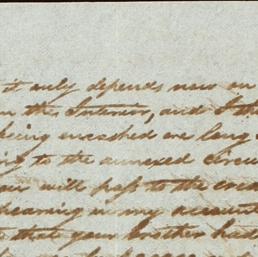 it only depends now on
the Interior, and I th
being encashed ere long
to the annexed Circu
will pass to the cre
appearing in my account
that your brother had